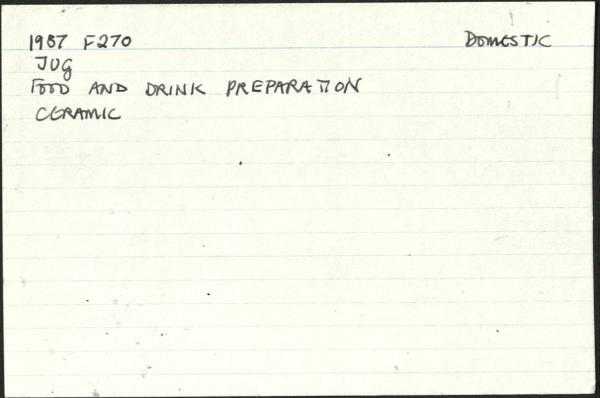 1987 F270 DOMESTIC
JUG
FOOD AND DRINK PREPARATION
CERAMIC